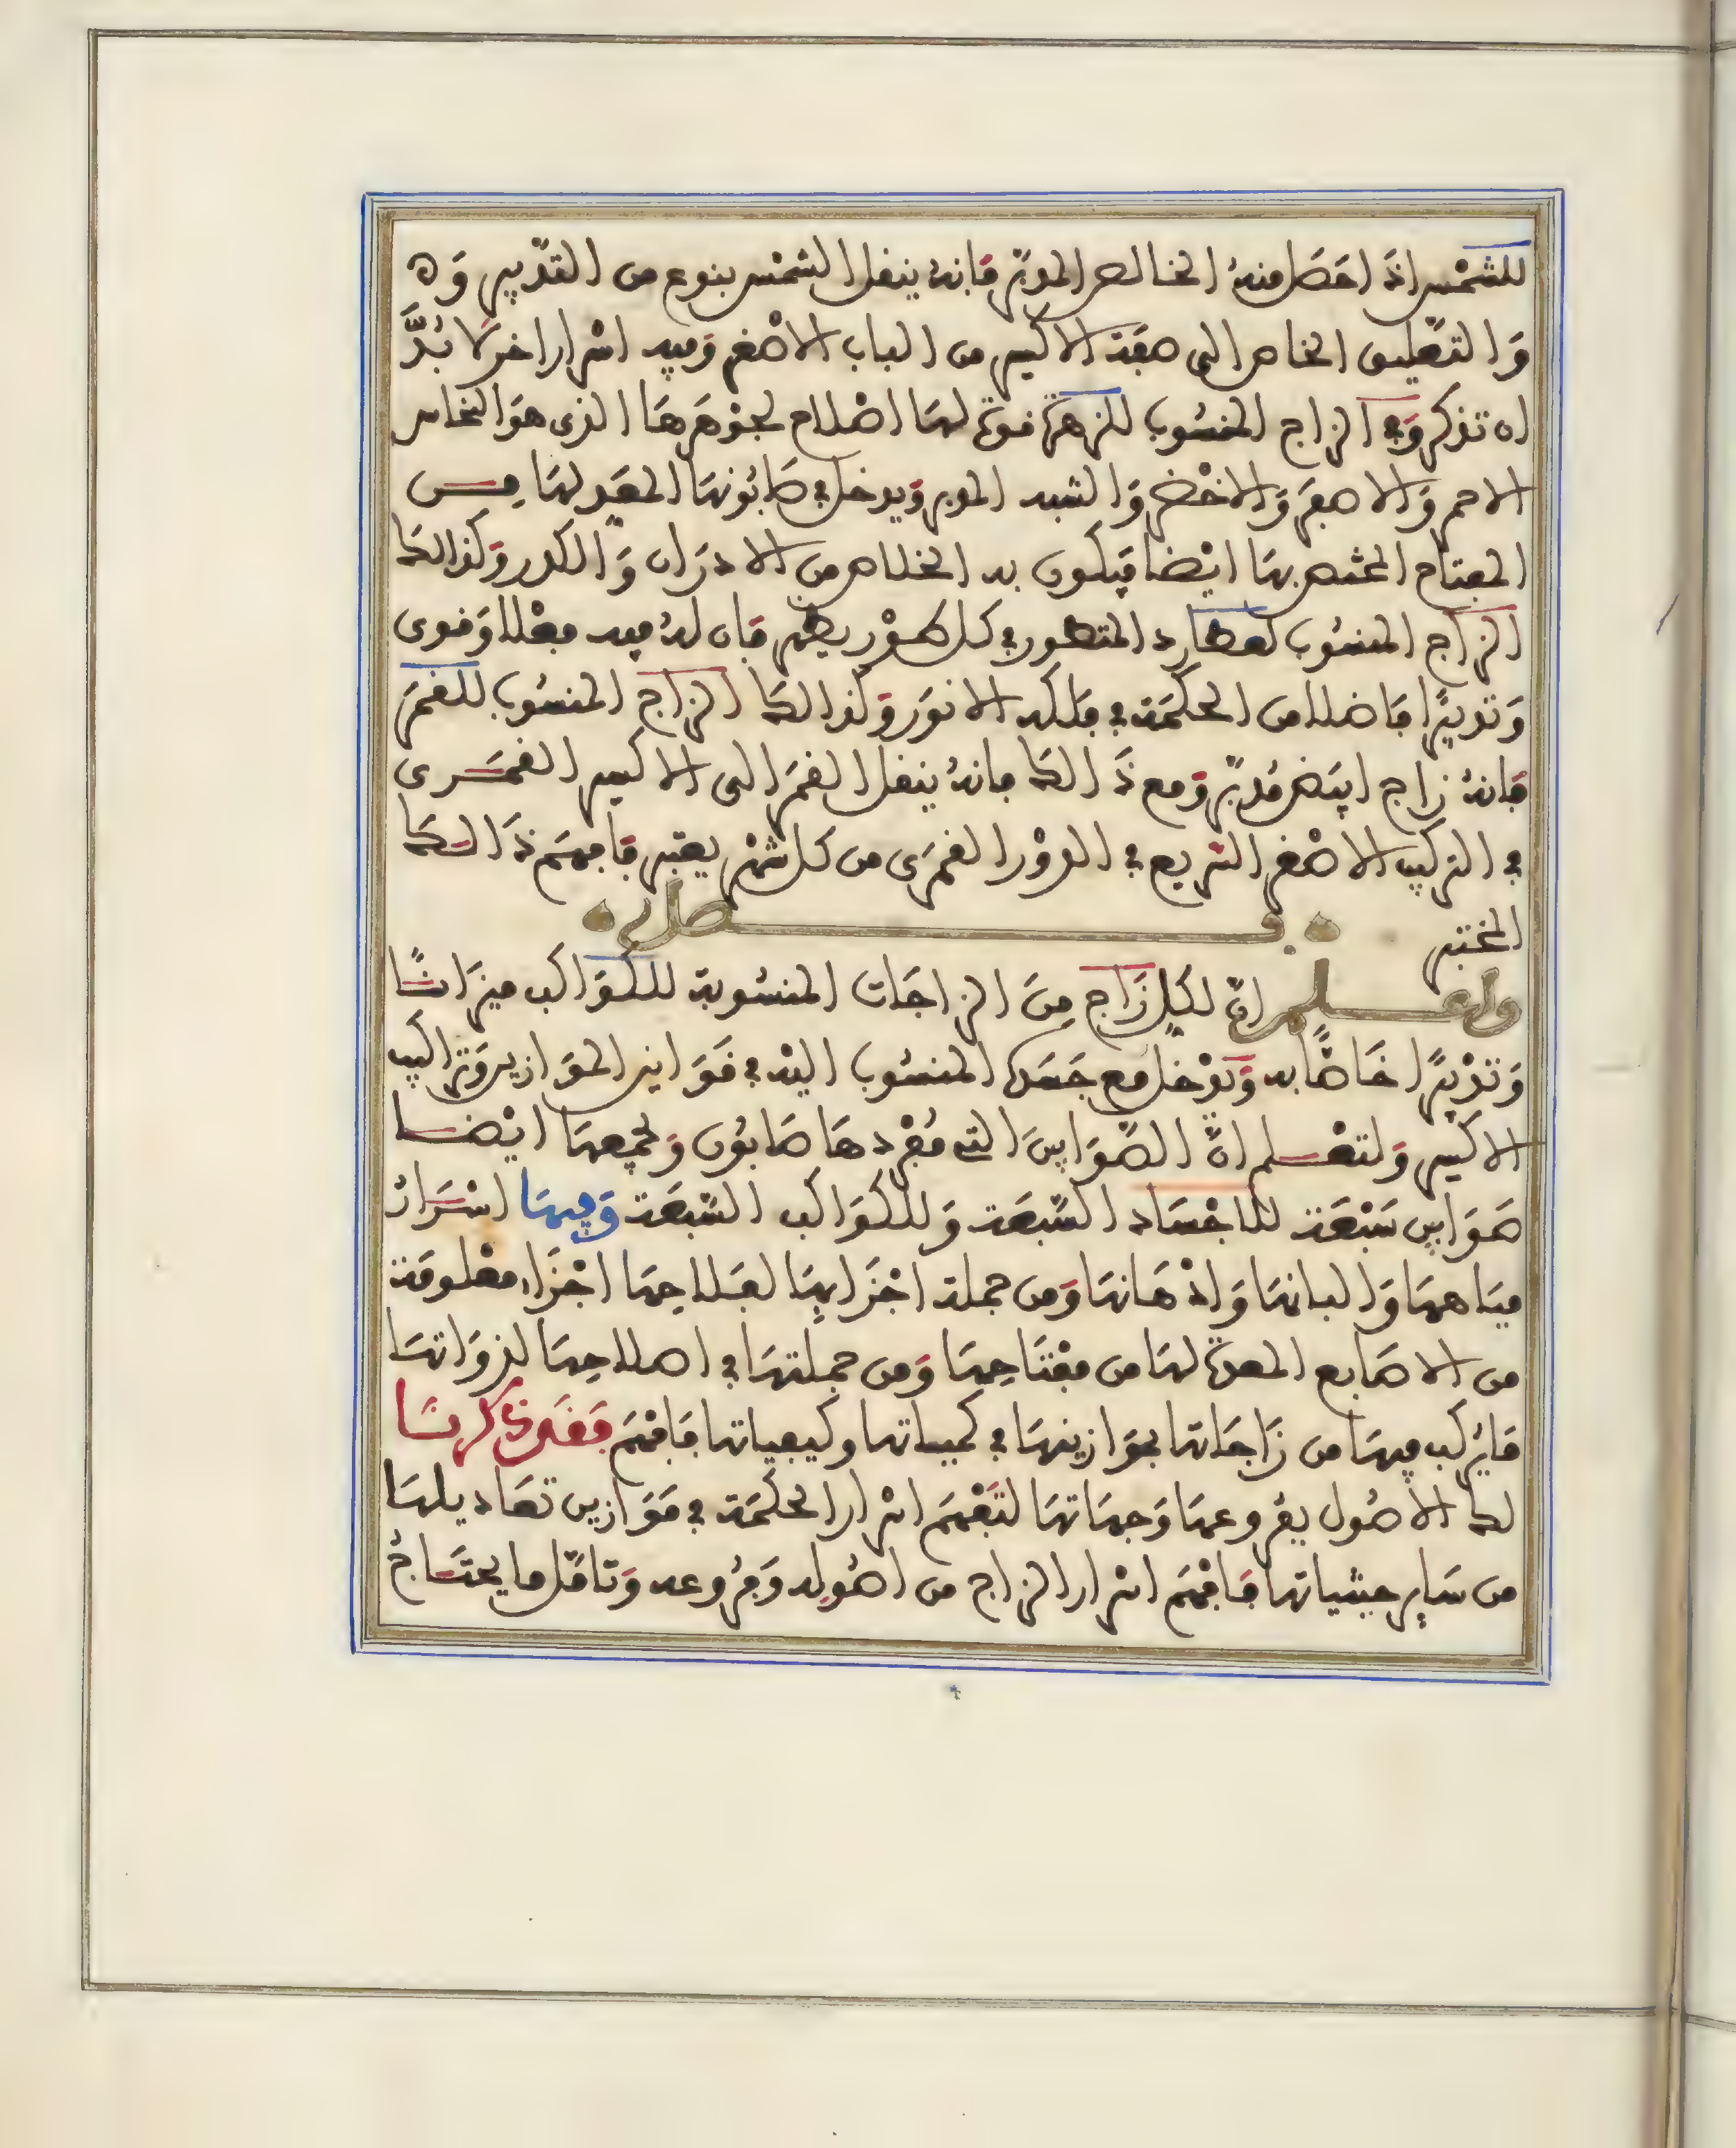 للشمس اذا حصل منه الخالص المدبر فانه ينقل الشمس بنوع من التدبير و ه
والتعليق الخاص الى صفة الاكسير من الباب الاصغر وفيه اسرار اخر لا بد
ان تذكر وفي الزاج المنسوب للزهرة قوة لها اصلاح لجوهرها الذي هو النحاس
الاحمر والاصفر والاخضر والشبه المدبر ويدخل في صابونها المعد لها من
المفتاح المختص بها ايضا فيكون به الخلاص من الادران والكدر وكذالك
الزاج المنسوب لعطارد المتطور في كل طور يظهر فان له فيه فعلا وقوى
وتدبيرا فاضلا من الحكمة في فلكه الانور وكذالك الزاج المنسوب للقمر
فانه زاج ابيض مدبر ومع ذالك فانه ينقل القمر الى الاكسير القمرى
في التركيب الاصغر السريع في الدور القمرى من كل شهر يعتبر فافهم ذالك
المختبر
فصل
واعلم ان لكل زاج من الزاجات المنسوبة للكواكب ميزانا
وتدبيرا خاصا به ويدخل مع جسده المنسوب اليه في قوانين الموازين وتراكيب
الاكسير ولتعلم ان الصوابين التي مفردها صابون ولجمعها ايضا
صوابين سبعة للاجساد السبعة وللكواكب السبعة وفيها اسرار
مياهها والبانها وادهانها ومن جملة اجزايها لصلاحها اجزاء معلومة
من الاصابع المعدة لها من مفتاحها ومن جملتها في اصلاحها لذواتها
ما يركب فيها من زاجاتها بموازينها في كمياتها وكيفياتها فافهم فقد ذكرنا
لك الاصول بفروعها وجهاتها لتفهم اسرار الحكمة في موازين تعاديلها
من ساير حيثياتها فافهم اسرار الزاج من اصوله وفروعه وتامل ما يحتاج